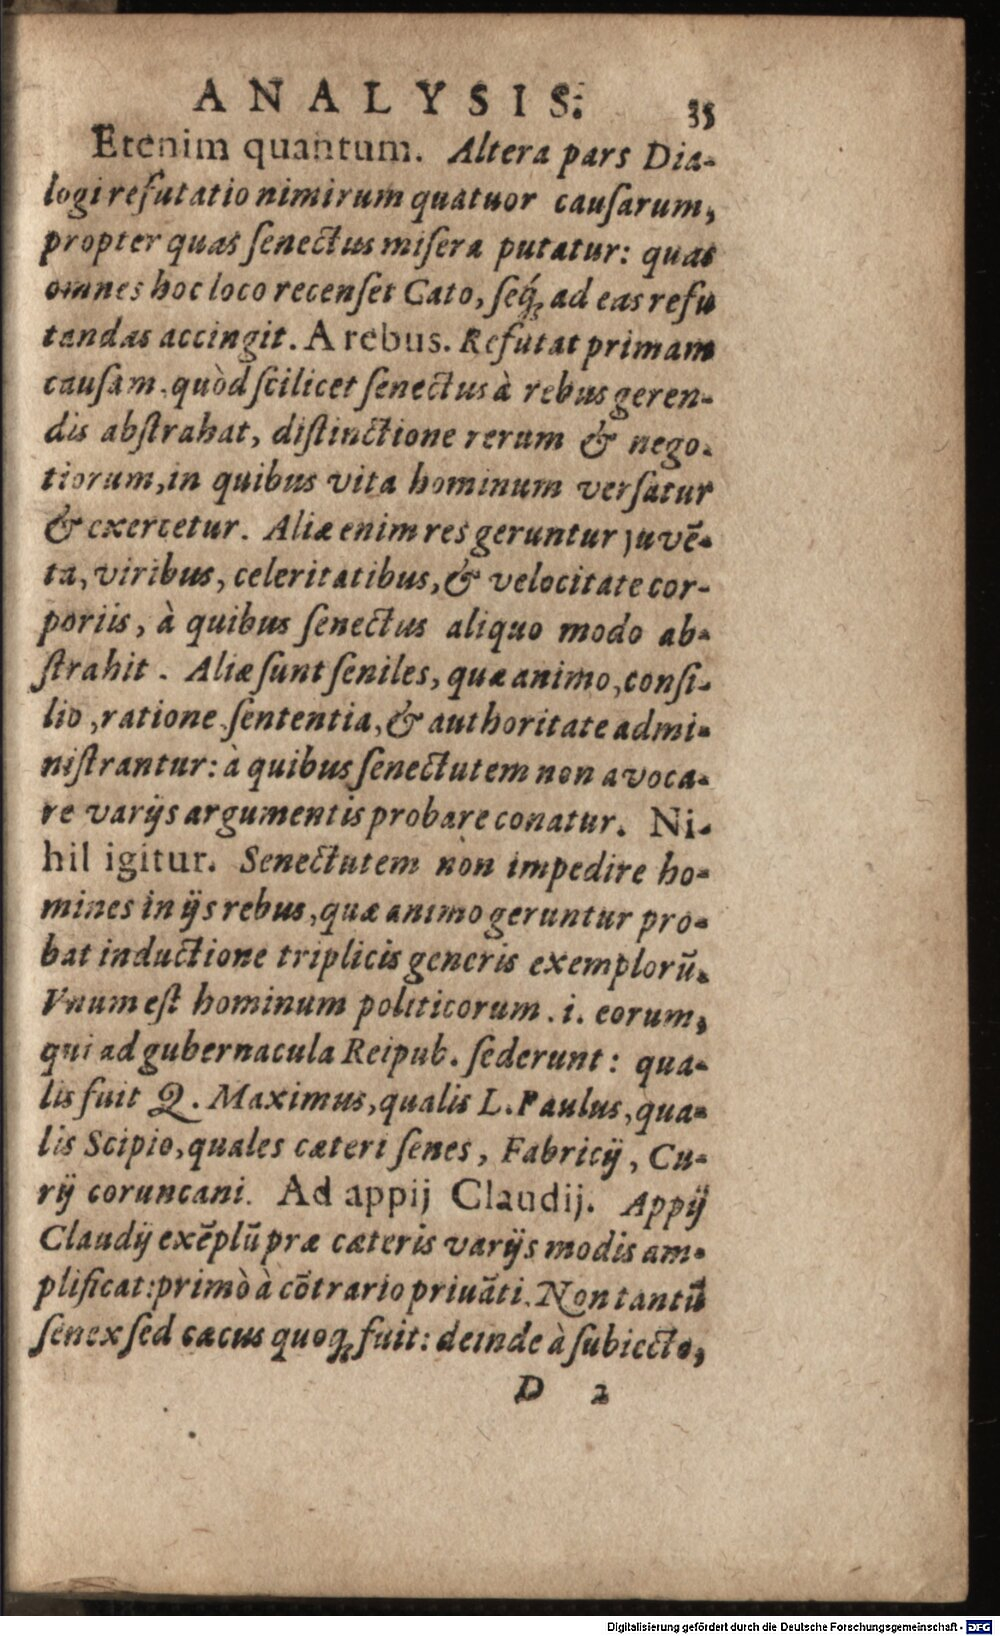 ANALYSIS. 35
Etenim quantum. Altera pars Dia-
logi refutatio nimirum quatuor cauſarum,
propter quas ſenectus miſera putatur: quas
omnes hoc loco recenſet Cato, ſeq́ꝫ ad eas refu
tandas accingit. A rebus. Refutat primam
cauſam, quòd ſcilicet ſenectus à rebus geren-
dis abſtrahat, diſtinctione rerum & nego-
tiorum, in quibus vita hominum verſatur
& exercetur. Aliæ enim res geruntur juvẽ-
ta, viribus, celeritatibus, & velocitate cor-
poriis, à quibus ſenectus aliquo modo ab-
ſtrahit. Aliæ ſunt ſeniles, quæ animo, conſi-
lio, ratione, ſententia, & authoritate admi-
niſtrantur: à quibus ſenectutem non avoca-
re varijs argumentis probare conatur. Ni-
hil igitur. Senectutem non impedire ho-
mines in ijs rebus, quæ animo geruntur pro-
bat inductione triplicis generis exemplorũ.
Vnum eſt hominum politicorum .i. eorum,
qui ad gubernacula Reipub. ſederunt: qua-
lis fuit Q. Maximus, qualis L. Paulus, qua-
lis Scipio, quales cæteri ſenes, Fabricij, Cu-
rij coruncani. Ad appij Claudij. Appij
Claudij exẽplũ præ cæteris varijs modis am-
plificat: primò à cõtrario priuãti. Non tantũ
ſenex ſed cæcus quoqꝫ fuit: deinde à ſubiecto,
D 2
Digitalisierung gefördert durch die Deutsche Forschungsgemeinschaft - DFG